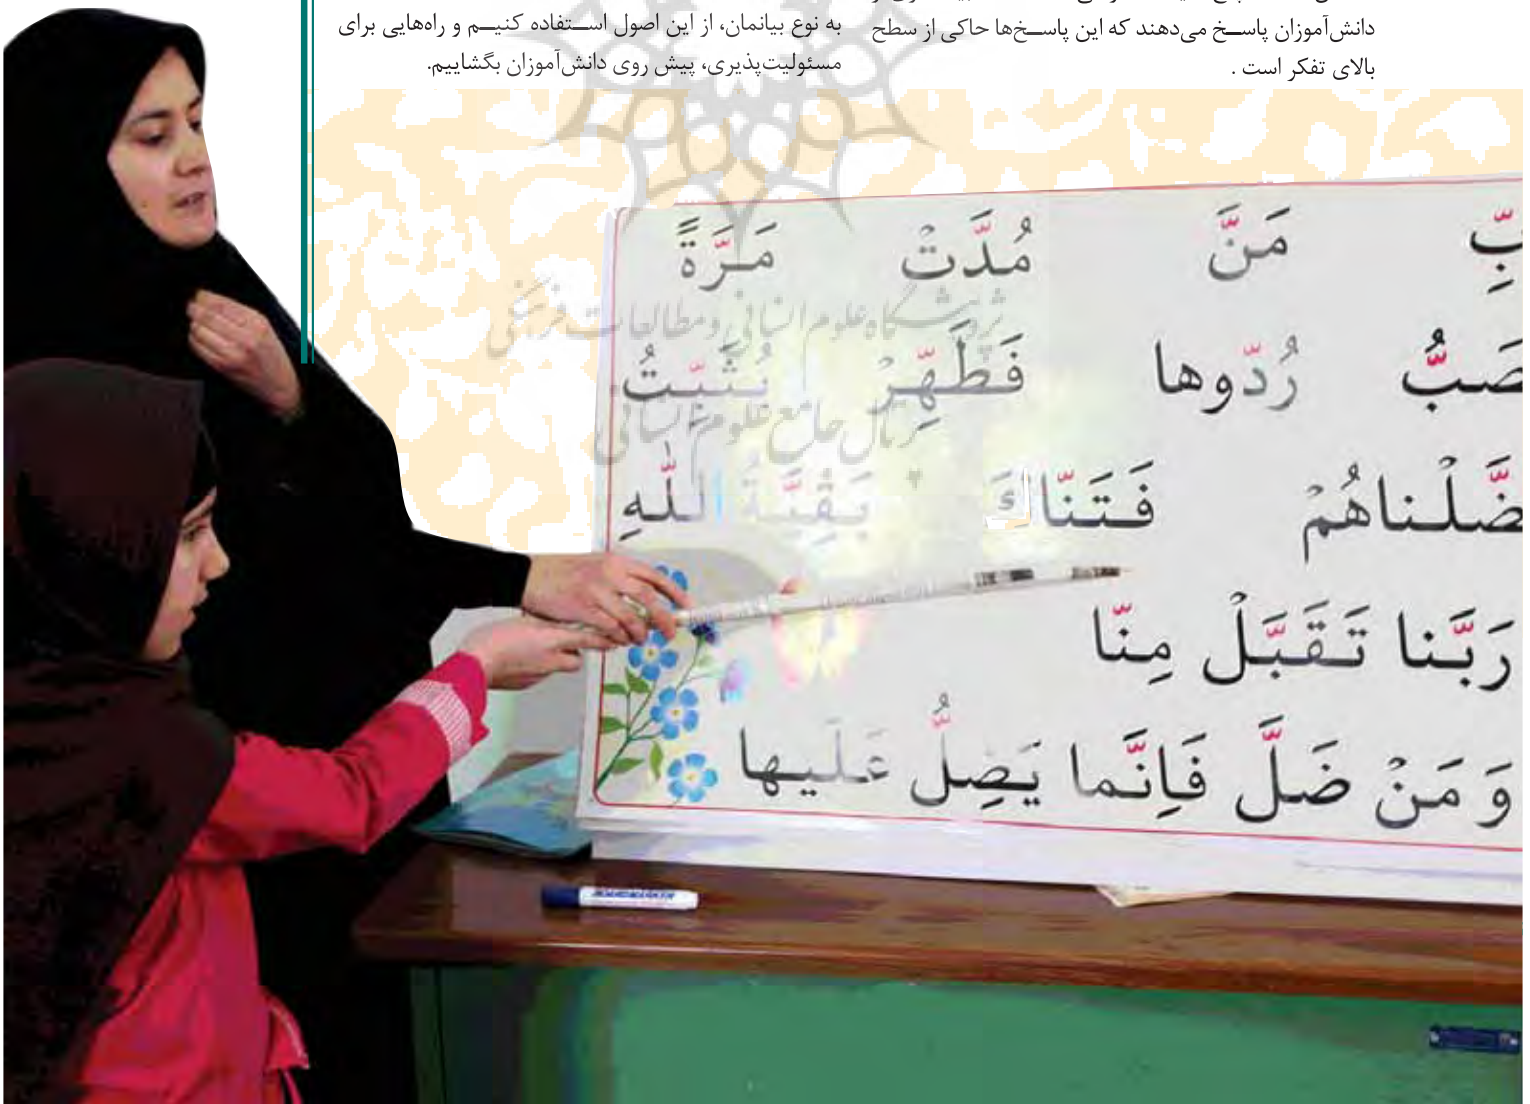 دانش‌آموزان پاسخ می‌دهند که این پاسخ‌ها حاکی از سطح
بالای تفکر است .
به نوع بیانمان، از این اصول استفاده کنیم و راه‌هایی برای
مسئولیت‌پذیری، پیش روی دانش‌آموزان بگشاییم.
پژوهشگاه علوم انسانی و مطالعات فرهنگی
پرتال جامع علوم انسانی
بِّ مَنَّ مُدَّتْ مَرَّةً
صَبُّ رُدّوها فَطَهِّرْ نُثَبِّتُ
ضَّلْناهُمْ فَتَنّاكَ بَقِيَّةُ اللّٰهِ
رَبَّنا تَقَبَّلْ مِنّا
وَ مَنْ ضَلَّ فَاِنَّما يَضِلُّ عَلَيها